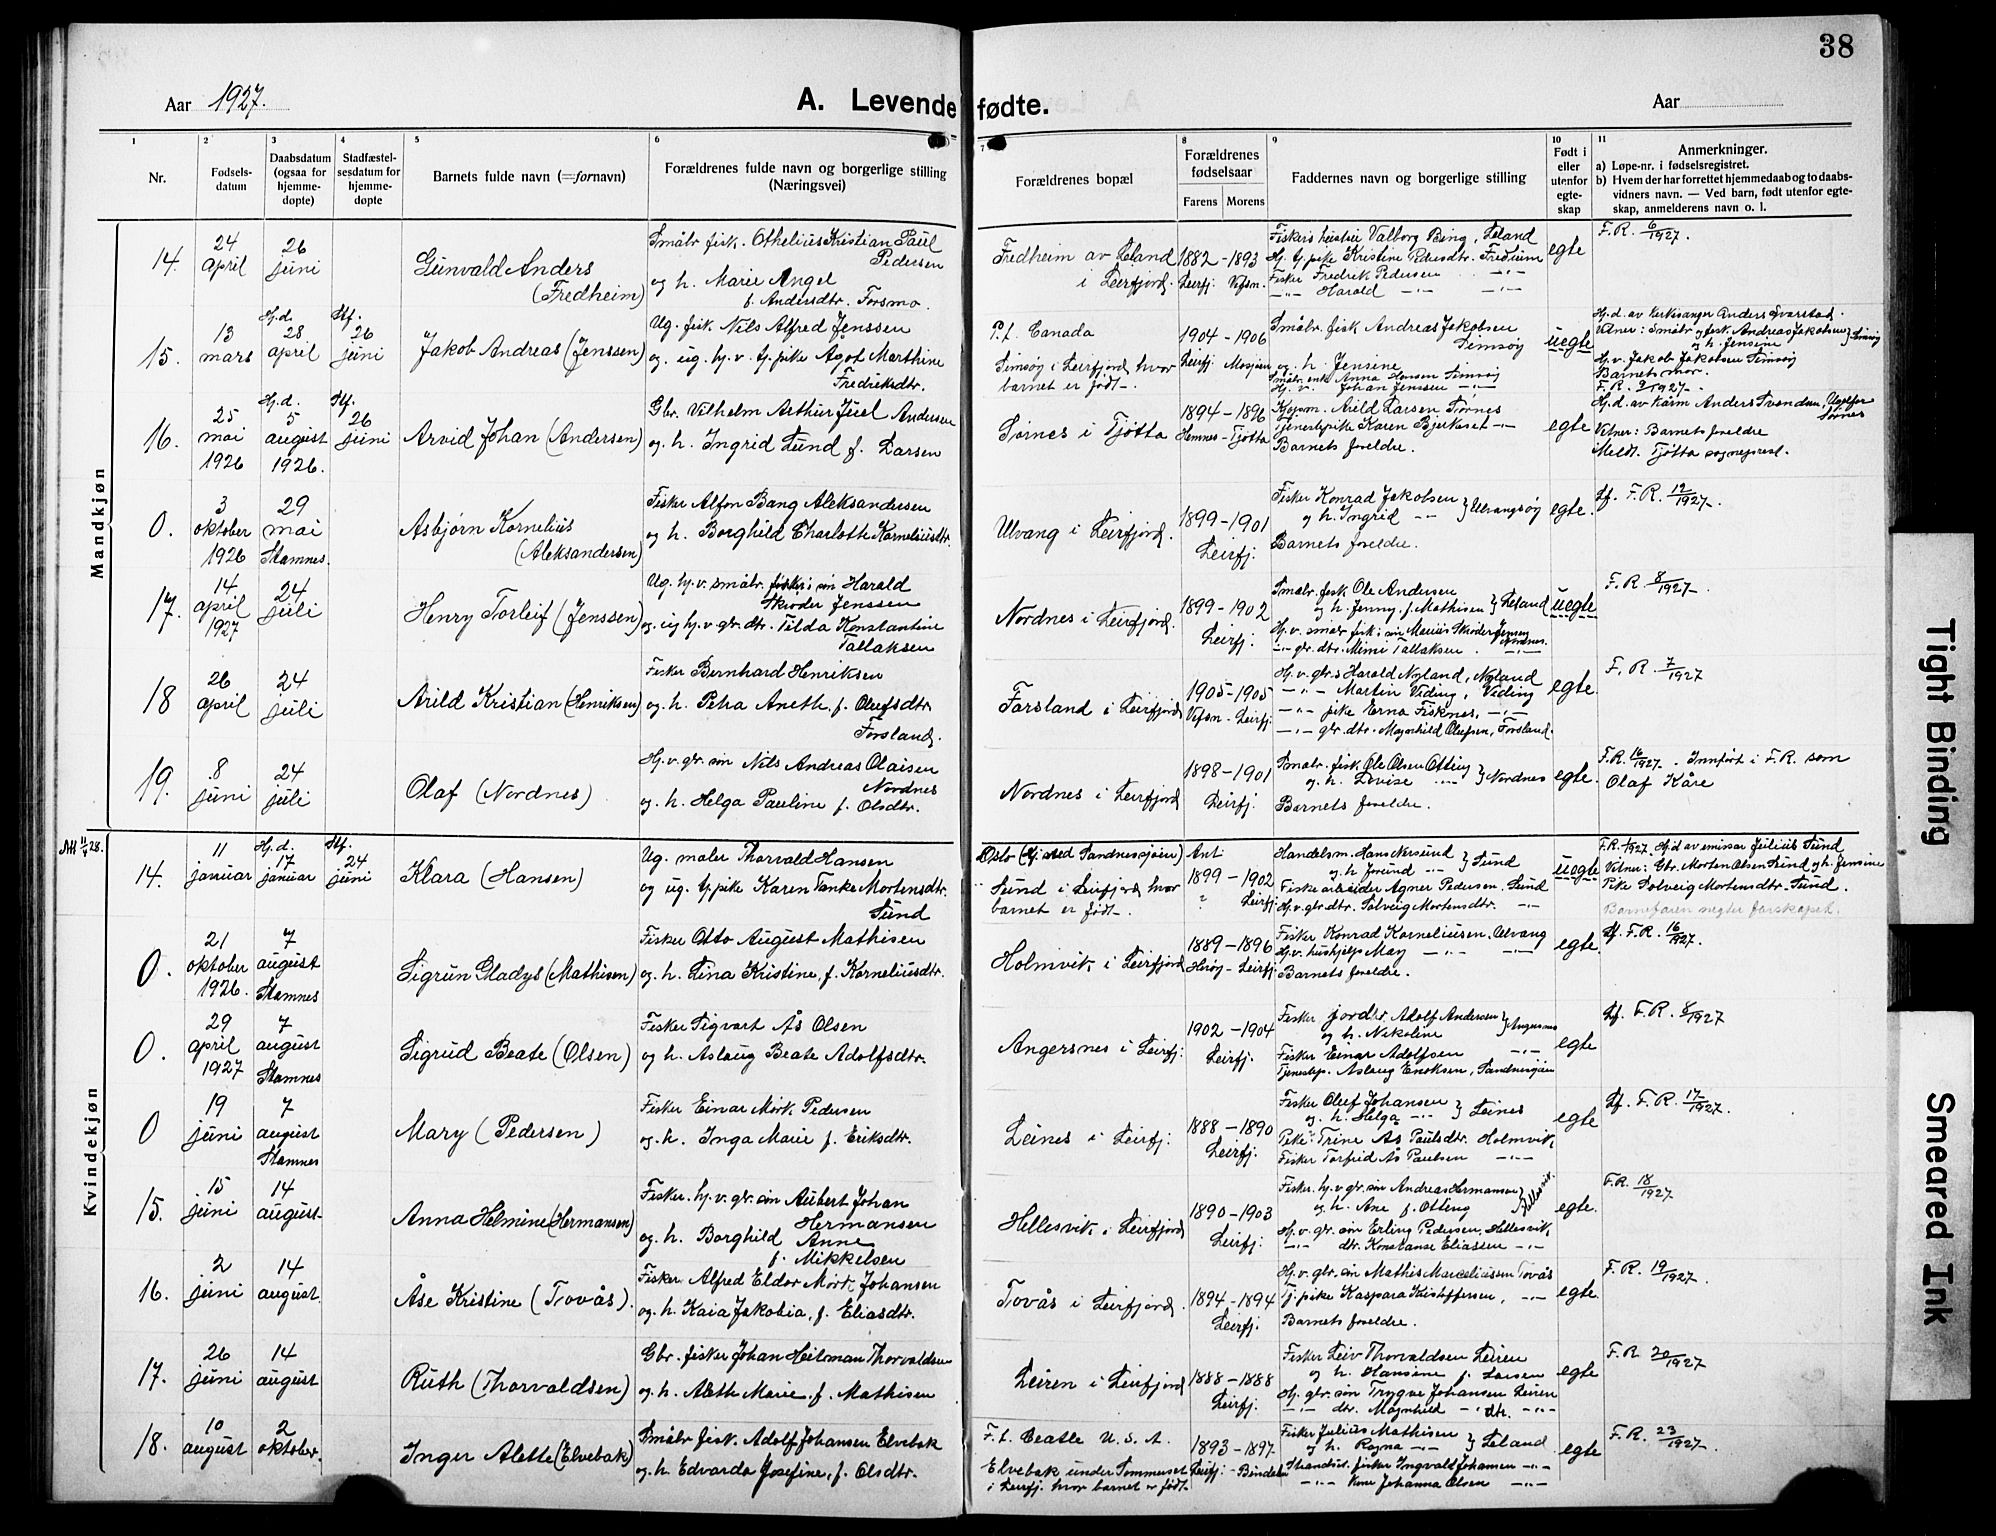 38
Aar 1927.
A. Levende fødte.
Aar
1 2 3 4 5 6 7 8 9 10 11
Nr.
Fødsels-
datum
Daabsdatum
(ogsaa for
hjemme-
døpte)
Stadfæstel-
sesdatum for
hjemme-
døpte
Barnets fulde navn (=fornavn)
Forældrenes fulde navn og borgerlige stilling
(Næringsvei)
Forældrenes bopæl
Forældrenes
fødselsaar
Farens Morens
Faddernes navn og borgerlige stilling
Født i
eller
utenfor
egte-
skap
Anmerkninger.
a) Løpe-nr. i fødselsregistret.
b) Hvem der har forrettet hjemmedaab og to daabs-
vidners navn. — Ved barn, født utenfor egte-
skap, anmelderens navn o. l.
Mandkjøn
14.
24
april
26
juni
Gunvald Anders
(Fredheim)
Småbr. fisk. Othelius Kristian Paul
Pedersen
og h. Marie Angel
f. Andersdtr. Forsmo.
Fredheim av Leland
i Leirfjord.
1882 - 1893
Leirfj. Vefsn.
Fiskers hustru Valborg Bing, Leland
Hj. tj. pike Kristine Pedersdtr. Fredheim
Fisker Fredrik Pedersen -"-
-"- Harald -"- -"-
egte
F.R. 6/1927.
15.
13
mars
Hj.d.
28
april
Stf.
26
juni
Jakob Andreas (Jenssen)
Ug. fisk. Nils Alfred Jenssen
og ug. hj. v. tj. pike Agot Marthine
Fredriksdtr.
P.t. Canada
Simsøy i Leirfjord, hvor
barnet er født -.
1904 - 1906
Leirfj. Mosjøen
Småbr. fisk Andreas Jakobsen
Simsøy
og h. Jensine
Småbr. enk. Anna Hansen Simsøy
Hj. v. Johan Jenssen -"-
uegte
Hj.d. av kirkesanger Anders Kvarstad.
Vitner: Småbr. og fisk. Andreas Jakobsen
og h. Jensine } Simsøy
Hj. v. Jakob Jakobsen Simsøy
Barnets mor.
F.R. 9/1927 -
16.
25
mai
1926
Hj.d.
5
august
1926.
Stf.
26
juni
Arvid Johan (Andersen)
Gbr. Vilhelm Arthur Juel Andersen
og h. Ingrid Lund f. Larsen
Sørnes i Tjøtta
1894 - 1896
Hemnes - Tjøtta
Kjøpm. Arild Larsen Sørnes
Tjenestepike Karen Bjerkaset -"-
Barnets foreldre.
egte
Vitner: Barnets foreldre
Meldt. Tjøtta sogneprest.
0.
3
oktober
1926
29
mai
Stamnes.
Asbjørn Kornelius
(Aleksandersen)
Fisker Alfon Bang Aleksandersen
og h. Borghild Charlotte Korneliusdtr.
Ulvang i Leirfjord.
1899 - 1901
Leirfj.
Fisker Konrad Jakobsen
og h. Ingrid -"- } Ulvangsøy
Barnets foreldre.
egte.
Lf. F.R. 12/1927.
17.
14
april
1927
24
juli
Henry Torleif (Jenssen)
Ug. hj. v. småbr. fiskers søn Harald
Skrøder Jenssen
og ug hj. v gbr. dtr. Tilda Konstantine
Tallaksen
Nordnes i Leirfjord.
1899 - 1902
Leirfj.
Småbr. fisk Ole Andersen
og h. Jenny f. Mathisen } Leland
Hj. v. småbr fisk: søn Marius Skrøder Jensen
Nordnes.
-"- gbr. dtr. Mimi Tallaksen. -"-
uegte
F.R. 8/1927 -.
18
26
april
24
juli
Arild Kristian (Henriksen)
Fisker Bernhard Henriksen
og h. Petra Anette, f. Olufsdtr.
Forsland.
Forsland i Leirfjord
1905 - 1905
Vefsn - Leirfj.
Hj. v. gbr. s Harald Nyland, Nyland
-"- Martin Viding, Viding
-"- pike Erna Fisknes, -"-
-"- gbr. dtr. Magnhild Olufsen, Forsland.
egte.
F.R. 7/1927
19.
8
juni
24
juli
Olaf (Nordnes)
Hj. v. gbr. søn Nils Andreas Olaisen
Nordnes
og h. Helga Pauline f. Olsdtr.
Nordnes i Leirfjord
1898 - 1901
Leirfj.
Småbr. fisk. Ole Olsen Otting
og h. Lovise -"- } Nordnes
Barnets foreldre.
egte.
F.R. 16/1927 - Innført i F.R. som
Olaf Kåre
Kvindekjøn
Att 11/4 28.
14.
11
januar
Hj.d.
17
januar
Stf.
24
juni
Klara (Hansen)
Ug. maler Thorvald Hansen
og ug. tj. pike Karen Tanke Mortensdtr.
Sund
Oslo (Hj.sted Sandnessjøen)
Sund i Leirfjord, hvor
barnet er født -.
Ant
1899 - 1902
? Leirfj:
Handelsm. Hans Nersund
og h. Jorund -"- } Sund
Fiskearbeider Agner Pedersen. Sund
Hj. v. gbr dtr. Solveig Mortensdtr. -"-
uegte
F.R. 1/1927. Hj.d av emissær Julius Sund
Vitner: Gbr. Morten Olsen Sund og h. Jensine
Pike Solveig Mortensdtr. Sund.
Barnefaren negter farskapet.
0.
21
oktober
1926.
7
august
Stamnes
Sigrun Gladys (Mathisen)
Fisker Otto August Mathisen
og. h. Lina Kristine, f. Korneliusdtr.
Holmvik i Leirfjord
1889 - 1896
Herøy - Leirfj.
Fisker Konrad Korneliusen, Ulvang
Hj. v. hushjelp May -"- -"-
Barnets foreldre.
egte.
Lf. F.R. 16/1927.
0.
29
april
1927
7
august
Stamnes
Sigrud Beate (Olsen)
Fisker Sigvart Ås Olsen
og h. Aslaug Beate Adolfsdtr.
Angersnes i Leirfj:
1902 - 1904
Leirfj.
Fisker jordbr. Adolf Andersen
og h. Nikoline } Angersnes
Fisker Einar Adolfsen -"-
Tjenestep. Aslaug Enoksen, Sandnessjøen
egte
Lf. F.R. 8/1927
0
19
juni
7
august
Stamnes
Mary (Pedersen)
Fisker Einar Mørk Pedersen
og. h. Inga Marie f. Eriksdtr.
Leines i Leirfj:
1888 - 1890
Leirfj.
Fisker Oluf Johansen
og. h. Helga -"- } Leines
Pike Trine Ås Paulsdtr. Holmvik,
Fisker Torfrid Ås Paulsen -"-
egte
Lf. F.R. 17/1927.
15.
15
juni
14
august
Anna Helmine (Hermansen)
Fisker. hj. v. gbr. søn Aubert Johan
Hermansen
og. h. Borghild Anne
f. Mikkelsen
Hellesvik i Leirfjord
1890 - 1903
Leirfj:
Fisker. hj. v. gbr. søn Andreas Hermansen
og h. Ane f. Otting } Hellesvik
Hj. v. gbr. søn Erling Pedersen, Hellesvik,
-"- dtr. Konstanse Eliassen -"-
egte.
F.R. 18/1927
16.
2
juni
14
august.
Åse Kristine (Tovås).
Fisker Alfred Eldor Mørk Johansen
og. h. Kaia Jakobia, f. Eliasdtr.
Tovås i Leirfjord.
1894 - 1894
Leirfj.
Hj. v. gbr. søn Mathis Marceliussen Tovås
Tj. pike Kaspara Kristoffersen, -"-
Barnets foreldre.
egte.
F.R. 19/1927.
17.
26
juni
14
august
Ruth (Thorvaldsen)
Gbr. fisker Johan Heilman Thorvaldsen
og. h. Alette Marie. f. Mathisen
Leiren i Leirfjord
1888 - 1888
Leirfj.
Fisker Leiv Thorvaldsen Leiren
og h. Hansine f. Larsen
Hj. gbr. søn Trygve Johansen Leiren
-"- dtr. Magnhild -"- dtr. -"-
egte
F.R. 20/1927
18.
10
august
2
oktober.
Inger Alette (Elvebak)
Småbr fisk. Adolf Johansen Elvebak
og. h. Edvarda Josefine, f. Olsdtr.
F.t. Ceatle U.S.A.
Elvebak under Sommerset
i Leirfj. hvor barnet er født.
1893 - 1897
Leirfj: - Bindalen
Fisker Julius Mathisen
og h. Ragna -"- } Leland
Strandsit. fisker Ingvald Johansen -"-
-"- kone Johanna Olsen -"-
egte
F.R. 23/1927 -.
Tight Binding
Smeared Ink